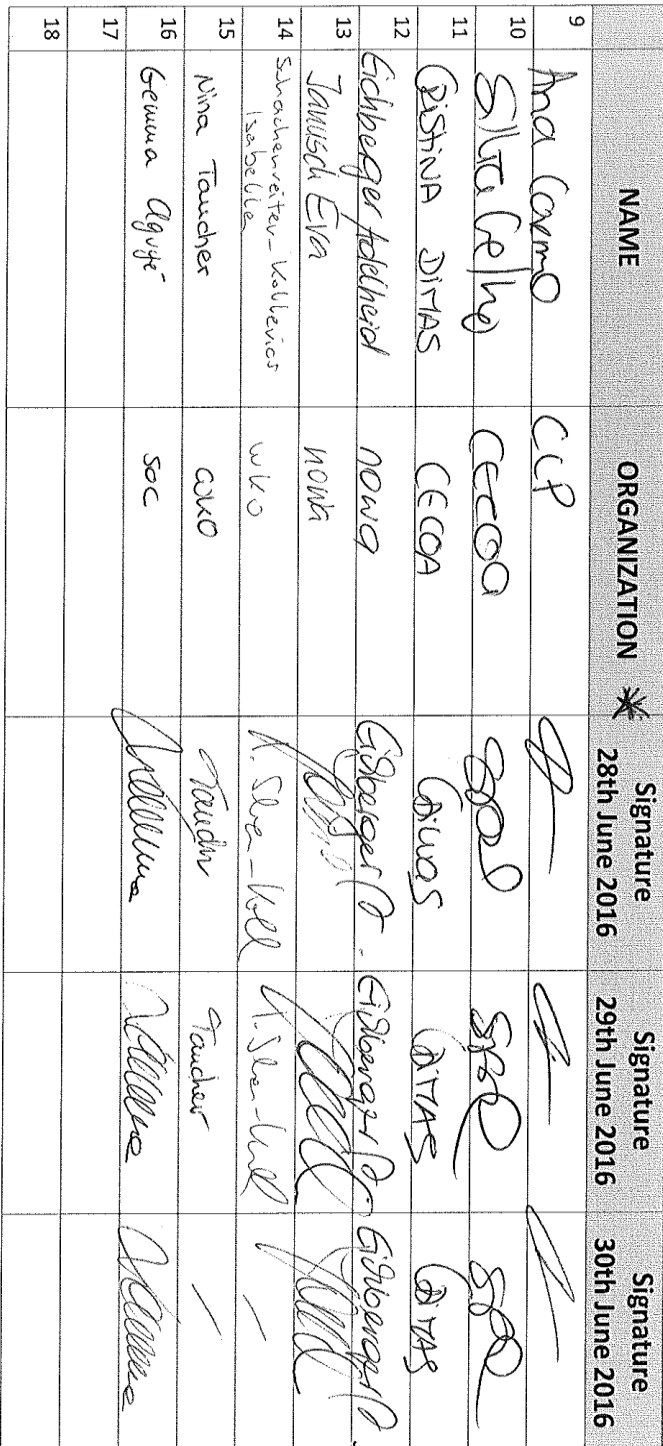 NAME ORGANIZATION Signature 28th June 2016 Signature 29th June 2016 Signature 30th June 2016
9 Ana Carmo CCP
10 Silvia Coelho CECOA
11 CRISTINA DIMAS CECOA DIMAS DIMAS DIMAS
12 Eichberger Adelheid nowa Eichberger Eichberger Eichberger
13 Janusch Eva nowa
14 Schachenreiter-Kollerics
Isabella WKO
15 Nina Taucher WKO Taucher Taucher /
16 Gemma Aguyé SOC
17
18